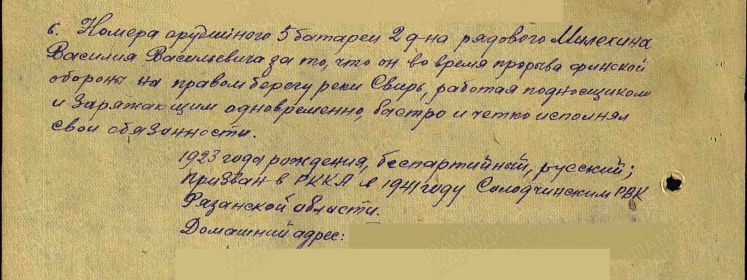 6. Номера орудийного 5 батареи 2 д-на рядового Милехина
Василия Васильевича за то, что он во время прорыва финской
обороны на правом берегу реки Свирь, работая подносчиком
и заряжающим одновременно, быстро и четко исполнял
свои обязанности.
1923 года рождения, беспартийный, русский;
призван в РККА в 1941 году Солодчинским РВК
Рязанской области.
Домашний адрес: